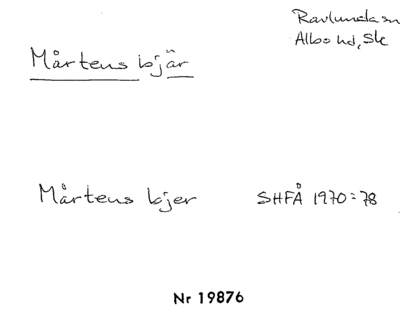 Ravlunda sn
Albo hd, Sk
Mårtens bjär
Mårtens bjer SHFÅ 1970:78
Nr 19876